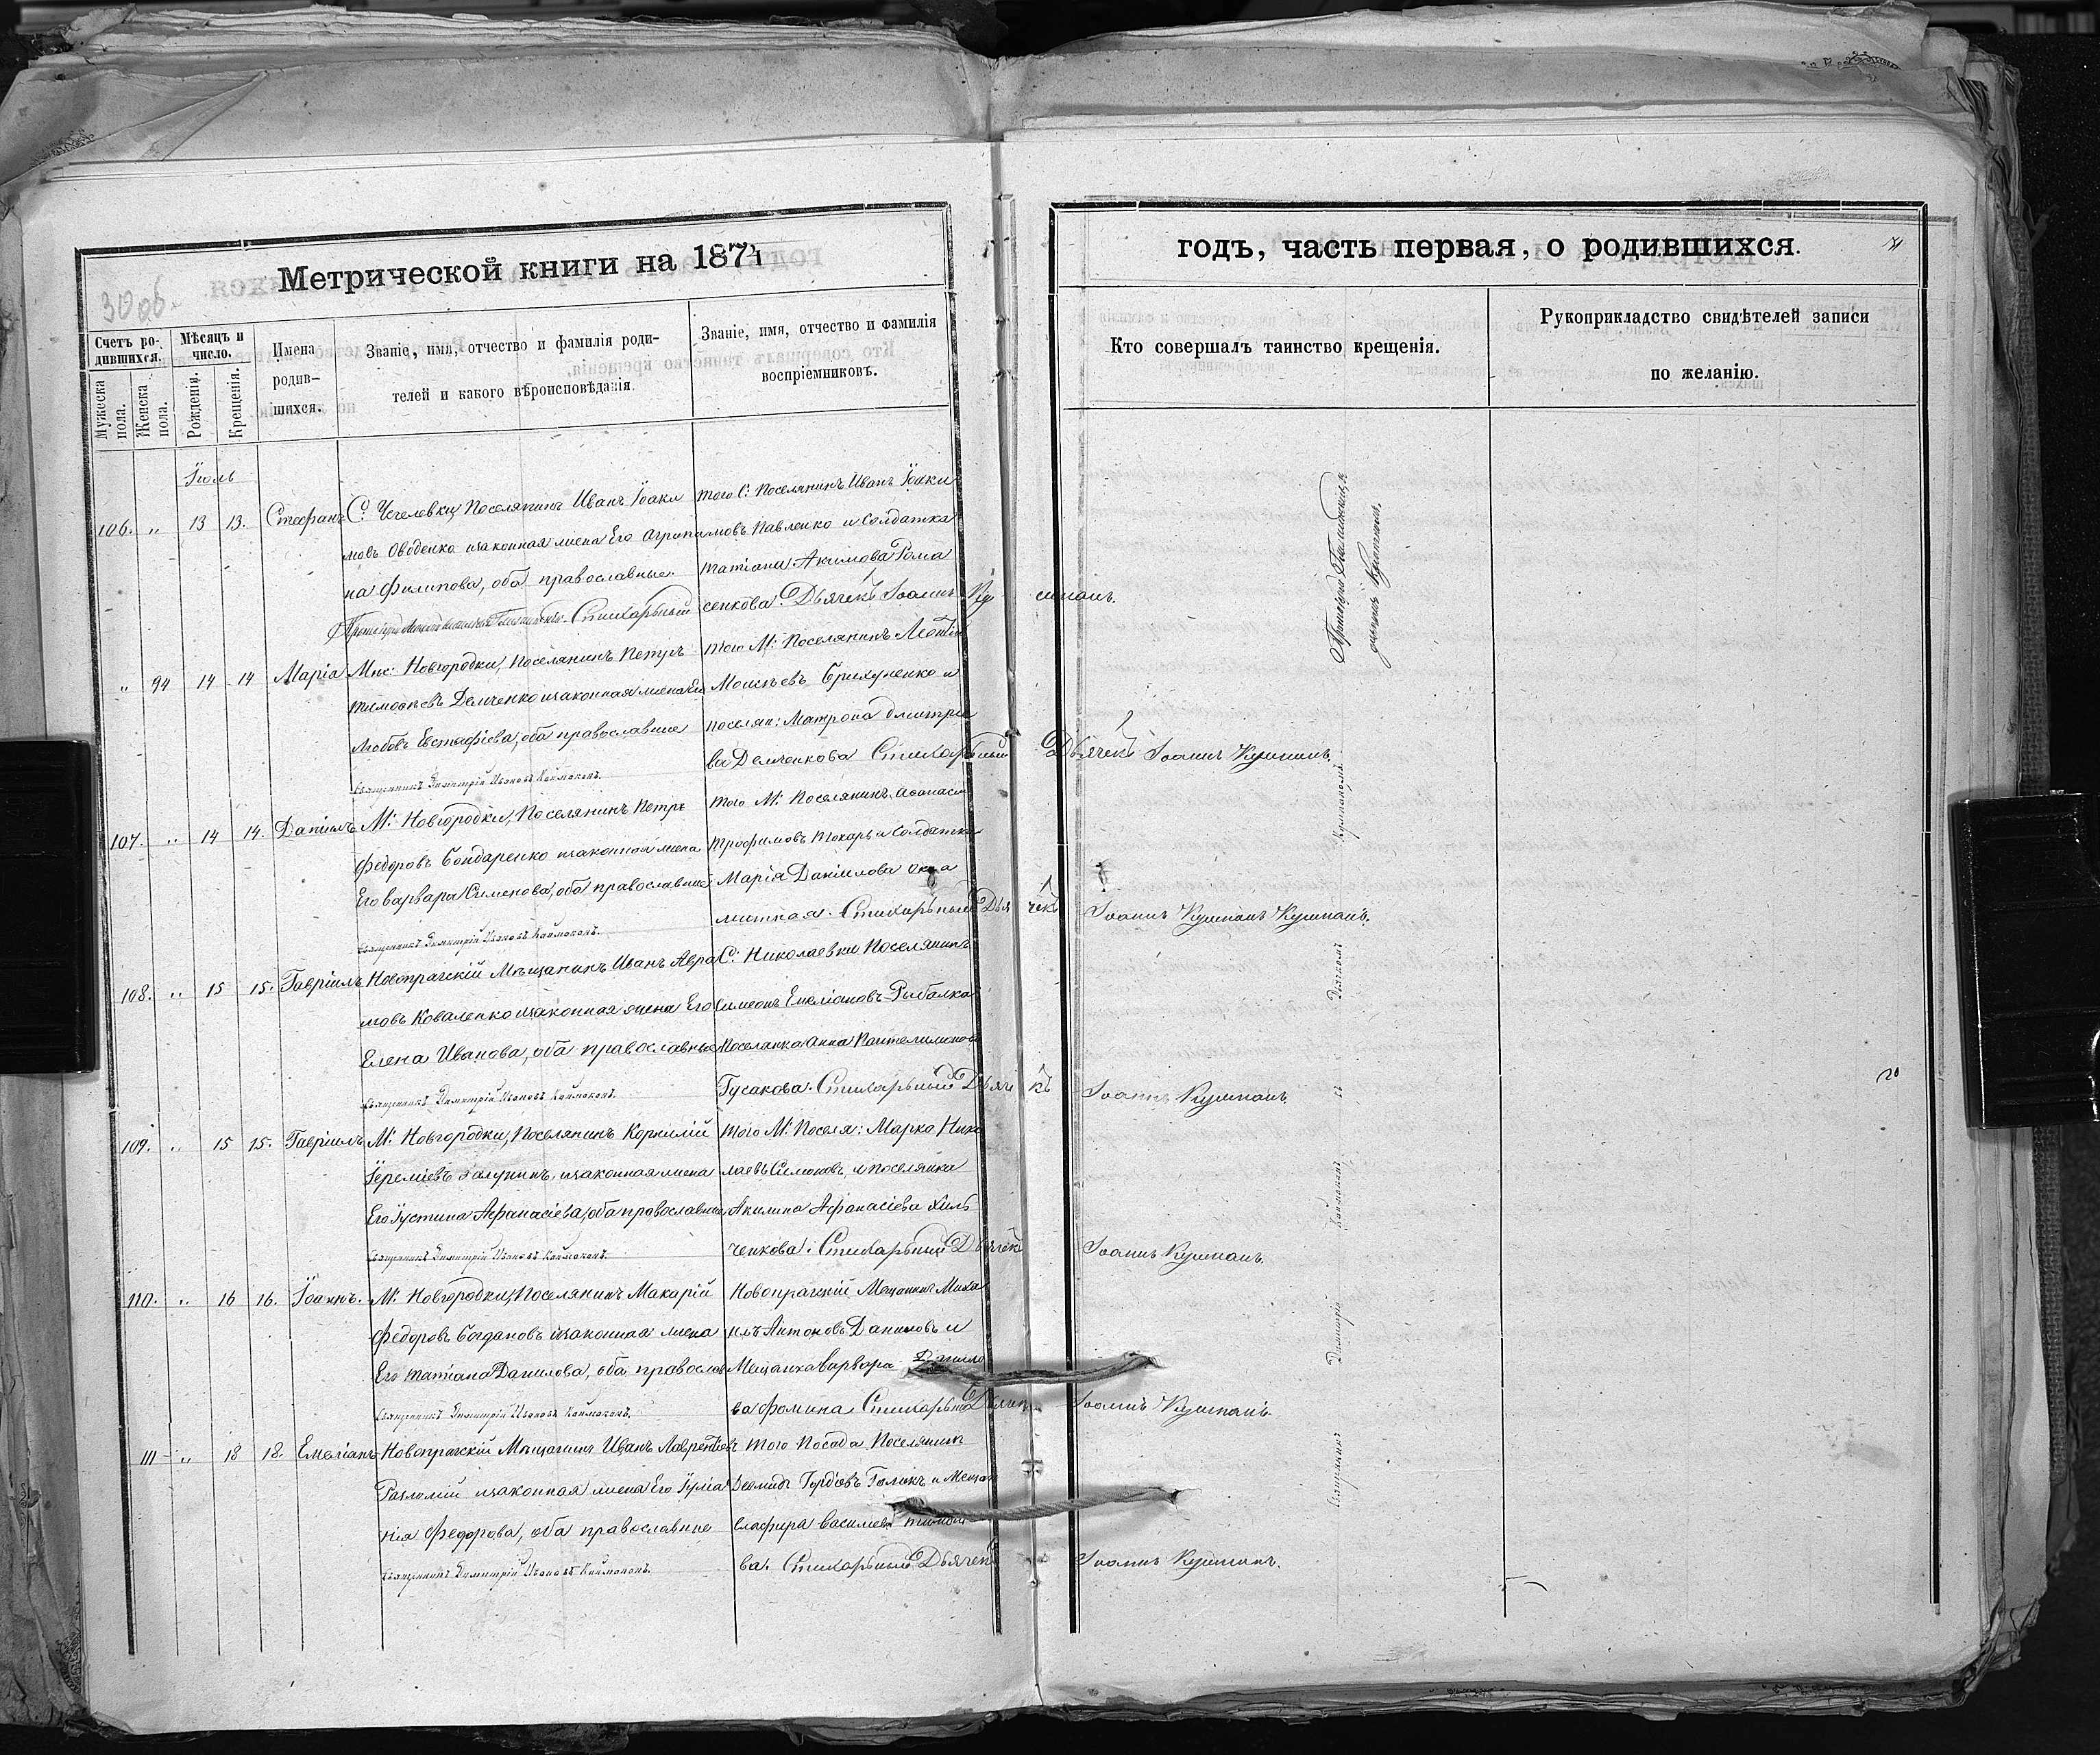 Метрической книги на 1874
30 об.
Счетъ ро-
дившихся.
Мѣсяцъ и
число.
Имена
родив-
шихся.
Званіе, имя, отчество и фамилія роди-
телей и какого вѣроисповѣданія.
Званіе, имя, отчество и фамилія
воспріемниковъ.
Мужеска
пола.
Женска
пола.
Рожденія.
Крещенія.
Іюль
106. „ 13 13. Стефанъ
С. Чечелевки Поселянинъ Иванъ Іоаки
мовъ Оводенко изаконная жена Его Агрипи
на Филипова, оба православные.
того С: Поселянинъ Иванъ Іоаки
мовъ Павленко и Солдатка
татіана Акимова Рома
сенкова. Дьячекъ Іоаннъ
„ 94 14 14 Марія
Мѣс: Новгородки, Поселянинъ Петръ
тимофѣевъ Демченко изаконная жена Его
Любовь Евстафіева, оба православные
Священникъ Димитрій Ивановъ Каймаканъ.
того М: Поселянинъ Леонтій
Моисѣевъ Брихуненко и
поселян: Матрона Дмитріе
ва Демченкова Стихарьный Дьячекъ Іоаннъ
107. „ 14 14. Даніилъ
М: Новгородки, Поселянинъ Петръ
Федоровъ Бондаренко изаконная жена
Его варвара Сименова, оба православные
Священникъ Димитрій Ивановъ Каймаканъ.
того М: Поселянинъ Афанасій
трофимовъ токарь и Солдатка
Марія Даніилова
Стихарьный Дьячекъ Іоаннъ
108. „ 15 15. Гавріилъ
Новопрагскій Мѣщанинъ Иванъ Авра
мовъ Коваленко изаконная жена Его
Елена Иванова, оба православные
Священникъ Димитрій Ивановъ Каймаканъ.
С: Николаевки Поселянинъ
Симеонъ Емеліановъ Рыбалка
Поселянка Анна Пантелимонова
Гусакова. Стихарьный Дьячекъ Іоаннъ
109. „ 15 15. Гавріилъ
М: Новгородки, Поселянинъ Корнилій
Іереміевъ Галунинъ, изаконная жена
Его Іустина Афанасіева, оба православные,
Священникъ Димитрій Ивановъ Каймаканъ.
того М: Поселя: Марко Нико
лаевъ Симоновъ, и поселянка
Акилина Афанасіева Хиль
ченкова. Стихарьный Дьячекъ Іоаннъ
110. „ 16 16. Іоаннъ.
М: Новгородки, Поселянинъ Макарій
Федоровъ Богдановъ изаконная жена
Его татіана Данилова, оба православ
Священникъ Димитрій Ивановъ Каймаканъ.
Новопрагскій Мещанинъ Миха
илъ Антоновъ Даниловъ и
Мещанка варвара
ва Фомина Стихарьный Дьячекъ Іоаннъ
111 „ 18 18. Емеліанъ
Новопрагскій Мѣщанинъ Иванъ Лаврентіевъ
изаконная жена Его
нія Федорова, оба православные
Священникъ Димитрій Ивановъ Каймаканъ.
того Посада Поселянинъ
Деомидъ Гордіевъ Голикъ и Мещан
Глафира василіева
ва. Стихарьный Дьячекъ Іоаннъ
годъ, часть первая, о родившихся.
Кто совершалъ таинство крещенія.
Рукоприкладство свидѣтелей записи
по желанію.
Священникъ Димитрій Каймаканъ съ Дьячкомъ